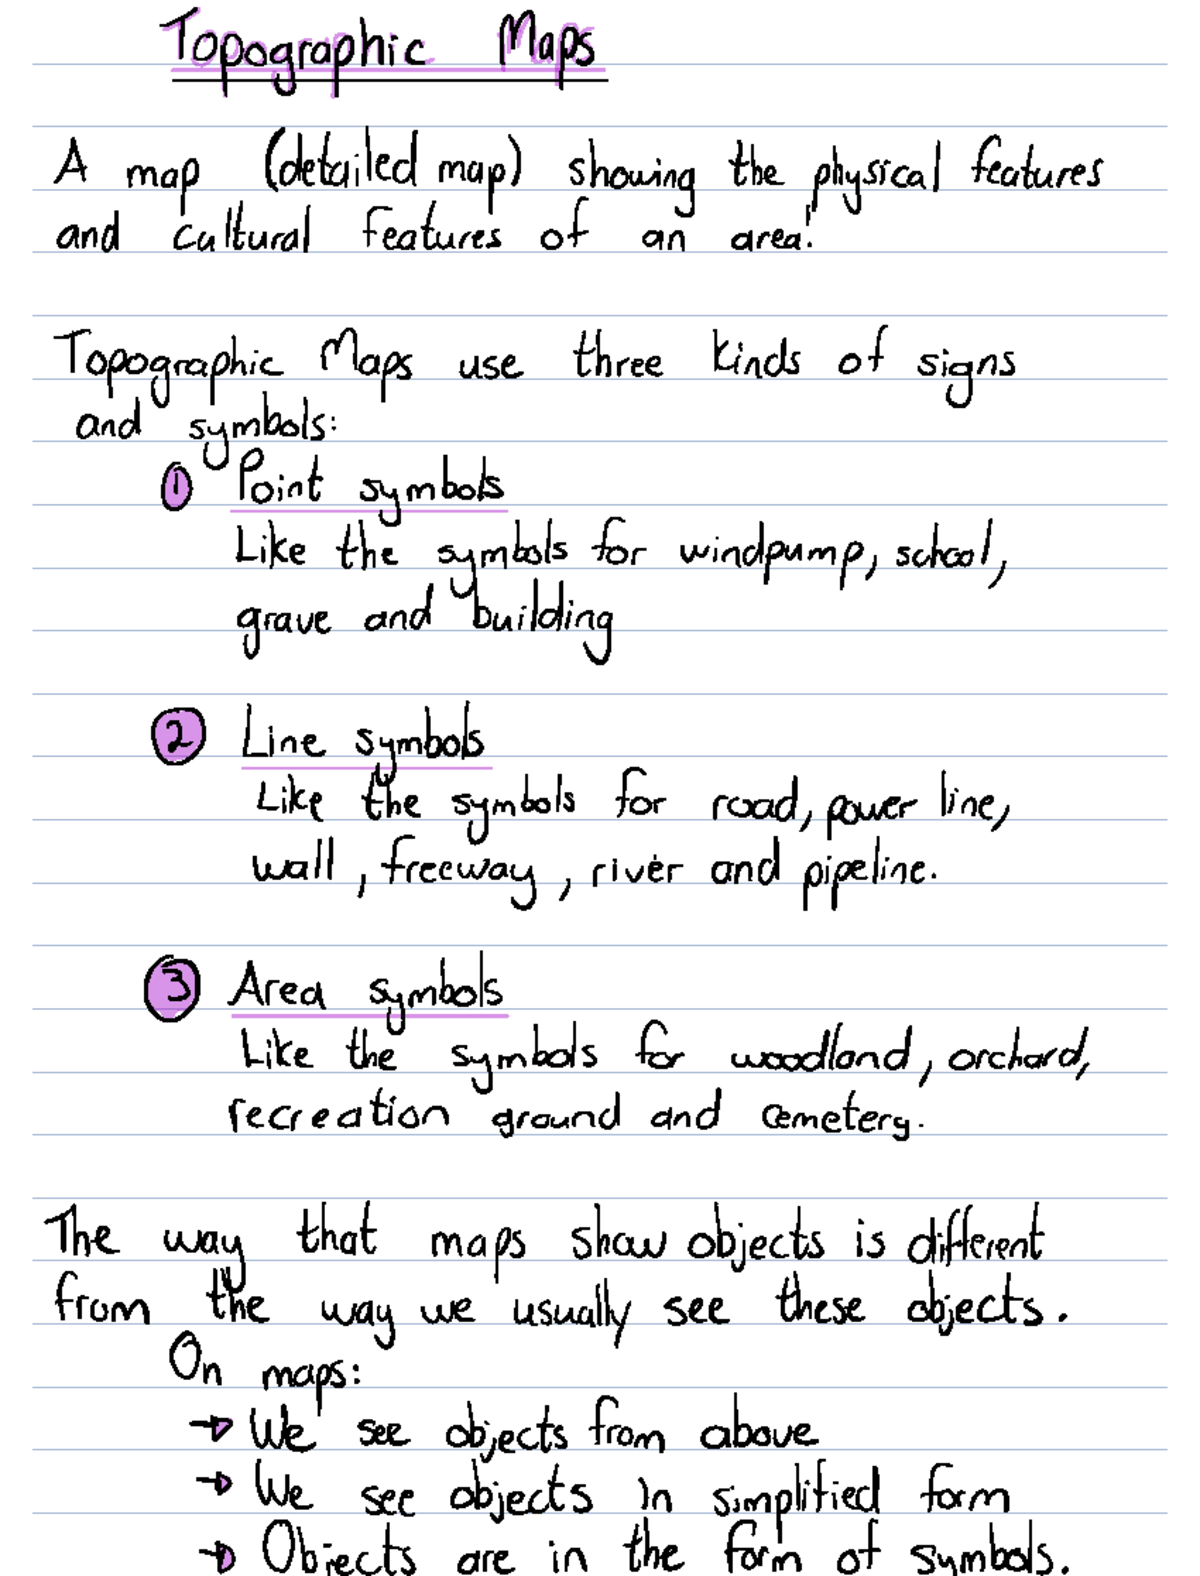 Topographic Maps
A map (detailed map) showing the physical features
and cultural features of an area.
Topographic Maps use three kinds of signs
and symbols:
1 Point symbols
Like the symbols for windpump, school,
grave and building
2 Line symbols
Like the symbols for road, power line,
wall, freeway, river and pipeline.
3 Area symbols
Like the symbols for woodland, orchard,
recreation ground and cemetery.
The way that maps show objects is different
from the way we usually see these objects.
On maps:
→ We see objects from above
→ We see objects in simplified form
→ Objects are in the form of symbols.